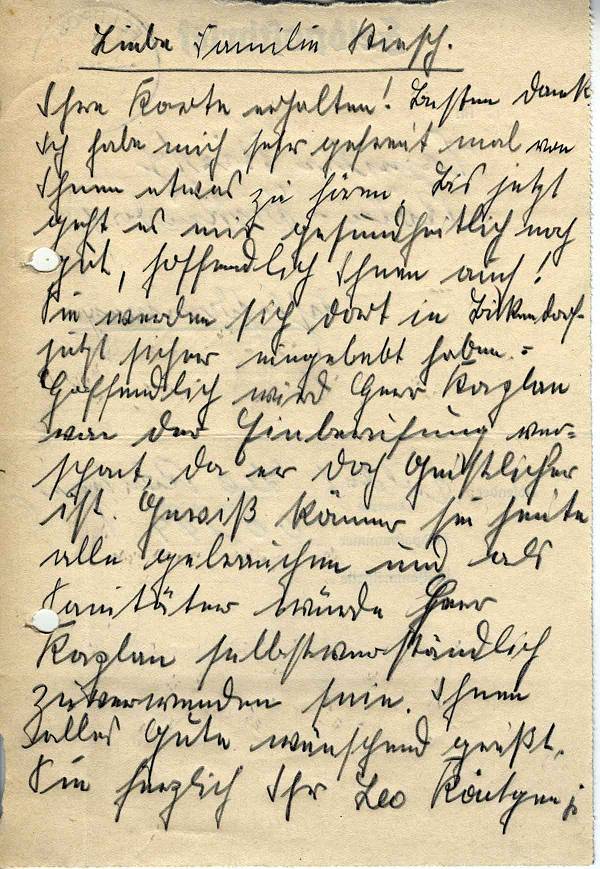 Liebe Familie Kirsch.
Ihre Karte erhalten! Besten Dank.
Ich habe mich sehr gefreut mal von
Ihnen etwas zu hören. Bis jetzt
geht es mir gesundheitlich noch
gut, hoffendlich Ihnen auch!
Sie werden sich dort in Bickendorf
jetzt sicher eingelebt haben. =
Hoffendlich wird Herr Kaplan
von der Einberufung ver=
schont, da er doch Geistlicher
ist. Gewiß können sie heute
alle gebrauchen und als
Sanitäter würde Herr
Kaplan selbstverständlich
zu verwenden sein. Ihnen
alles Gute wünschend grüßt
Sie herzlich Ihr Leo Röntgen jr